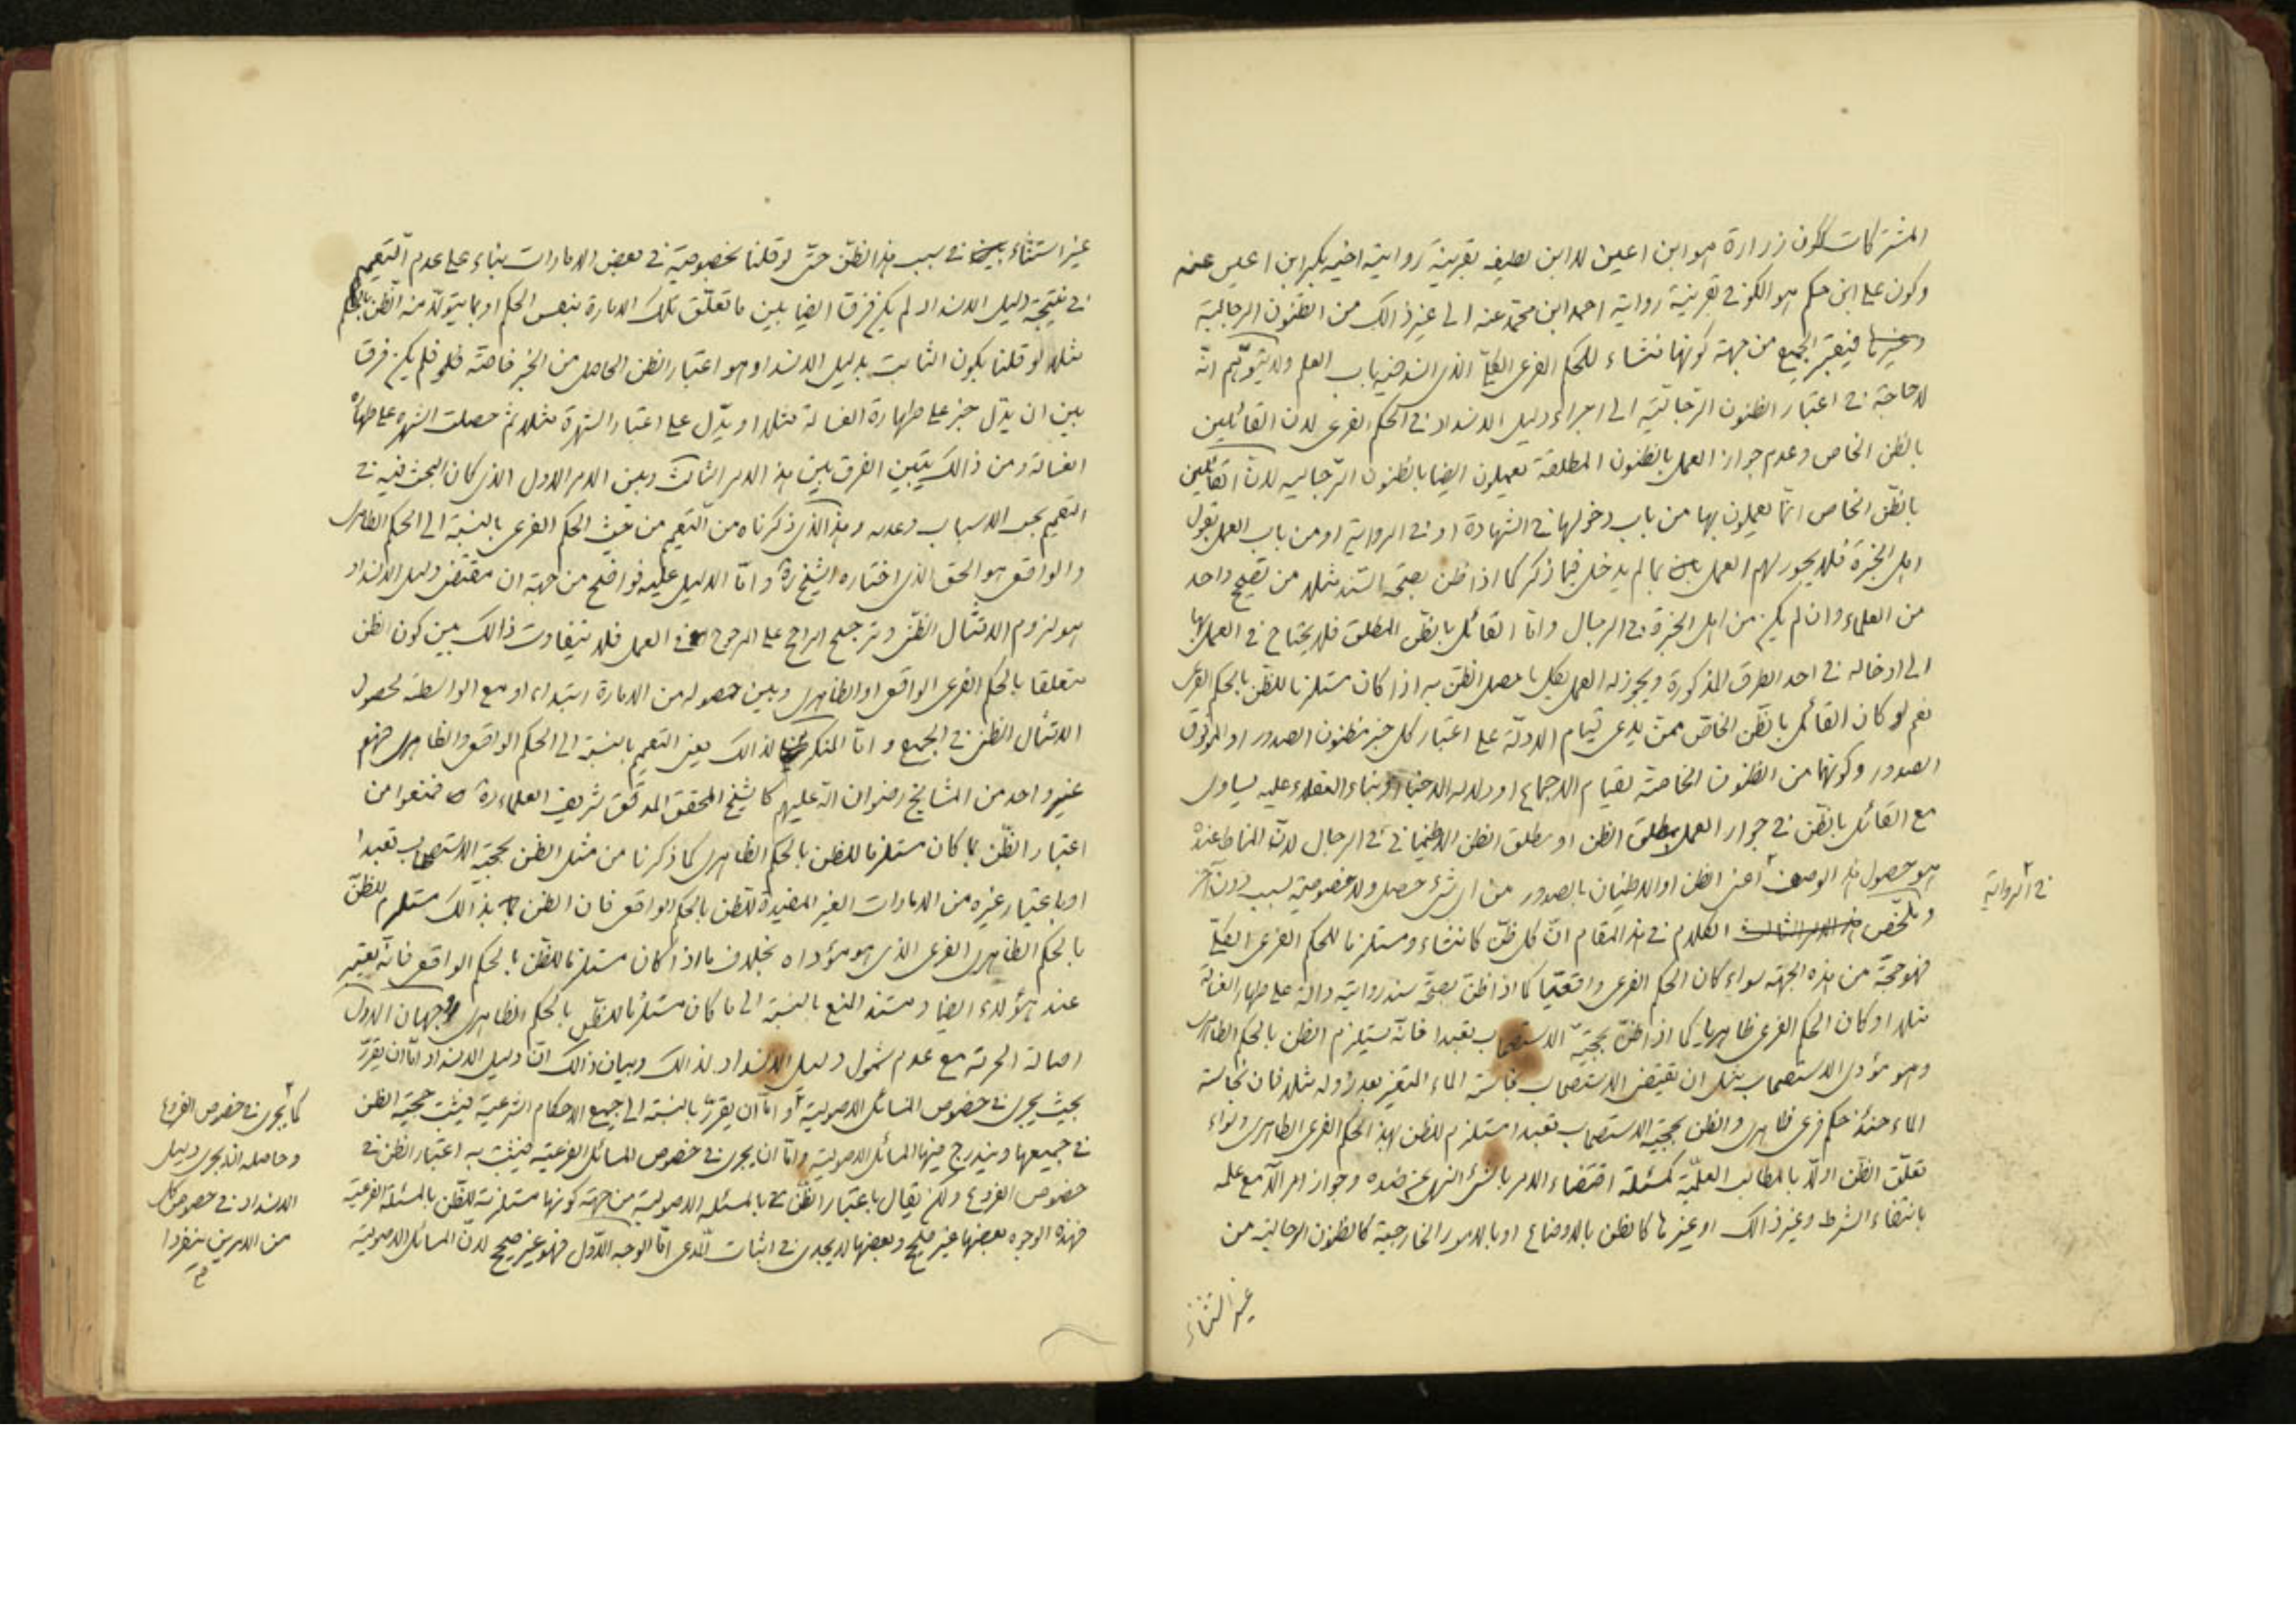 المشتركات ككون زرارة هو ابن اعين لا ابن لطيفه بقرينة رواية اخيه بكير ابن اعين عنه
وكون علي ابن حكم هو الكوفي بقرينة رواية احمد ابن محمد عنه الى غير ذالك من الظنون الرجالية
وغيرها فيعتبر الجميع من جهة كونها منشاء للحكم الفرعى الكلي الذى انسد فيه باب العلم ولا يتوهم انه
لا حاجة في اعتبار الظنون الرجالية الى اجراء دليل الانسداد في الحكم الفرعى لان القائلين
بالظن الخاص وعدم جواز العمل بالظنون المطلقة يعملون ايضا بالظنون الرجاليه لان القائلين
بالظن الخاص انما يعملون بها من باب دخولها في الشهادة او في الرواية او من باب العمل بقول
اهل الخبرة فلا يجوز لهم العمل بما لم يدخل فيما ذكر كما اذا ظن بصحة السند مثلا من تصحيح واحد
من العلماء وان لم يكن من اهل الخبرة في الرجال واما القائل بالظن المطلق فلا يحتاج في العمل بها
الى ادخاله في احد الطرق المذكورة ويجوز له العمل بكل ما حصل الظن به اذا كان مستلزما للظن بالحكم الفرعى
نعم لو كان القائل بالظن الخاص ممن يدعى قيام الادلة على اعتبار كل خبر مظنون الصدور او الموثوق
الصدور وكونهما من الظنون الخاصة لقيام الاجماع او دلالة الاخبار او بناء العقلاء عليه يساوى
مع القائل بالظن في جواز العمل بمطلق الظن او مطلق الظن الاطمينانى في الرجال لان المناط عنده
هو حصول هذا الوصف اعنى الظن او الاطمينان بالصدور من اى شئ حصل ولا خصوصية لسبب دون آخر
في الرواية
وملخص الكلام في هذا المقام ان كل ظن كان منشاء ومستلزما للحكم الفرعى الكلي
فهو حجة من هذه الجهة سواء كان الحكم الفرعى واقعيا كما اذا ظن بصحة سند رواية دالة على طهارة الغسالة
مثلا او كان الحكم الفرعى ظاهريا كما اذا ظن بحجية الاستصحاب تعبدا فانه يستلزم الظن بالحكم الظاهرى
وهو مؤدى الاستصحاب مثل ان يقتضى الاستصحاب نجاسة الماء المتغير بعد زواله مثلا فان نجاسة
الماء حينئذ حكم فرعى ظاهرى والظن بحجية الاستصحاب تعبدا مستلزم للظن بهذا الحكم الفرعى الظاهرى وسواء
تعلق الظن اولا بالمطالب العلمية كمسئلة اقتضاء الامر بالشئ النهى عن ضده وجواز امر الامر مع علمه
بانتفاء الشرط وغير ذالك او غيرها كالظن بالاوضاع او بالامور الخارجية كالظنون الرجالية من
غير استثناء
غير استثناء في سبب هذا الظن حتى لو قلنا بخصوصية في بعض الامارات بناء على عدم التعميم
في نتيجة دليل الانسداد لم يكن فرق ايضا بين ما تعلق تلك الامارة بنفس الحكم او بما يتولد منه الظن بالحكم
مثلا لو قلنا بكون الثابت بدليل الانسداد هو اعتبار الظن الحاصل من الخبر خاصة فلم يكن فرق
بين ان يدل خبر على طهارة الغسالة مثلا او يدل على اعتبار الشهرة مثلا ثم حصلت الشهرة على طهارة
الغسالة ومن ذالك يتبين الفرق بين هذا الامر الثالث وبين الامر الاول الذى كان البحث فيه في
التعميم بحسب الاسباب وعدمه وهذا الذى ذكرناه من التعميم من حيث الحكم الفرعى بالنسبة الى الحكم الظاهرى
والواقعى هو الحق الذى اختاره الشيخ ره واما الدليل عليه فواضح من جهة ان مقتضى دليل الانسداد
هو لزوم الامتثال الظنى وترجيح الراجح على المرجوح في العمل فلا يتفاوت ذالك بين كون الظن
متعلقا بالحكم الفرعى الواقعى او الظاهرى وبين حصوله من الامارة ابتداء او مع الواسطة لحصول
الامتثال الظنى في الجميع واما المنكر لذالك يعنى التعميم بالنسبة الى الحكم الواقعى والظاهرى فهم
غير واحد من المشايخ رضوان الله عليهم كالشيخ المحقق المدقق شريف العلماء ره فمنعوا من
اعتبار الظن بما كان مستلزما للظن بالحكم الظاهرى كما ذكرنا من مثل الظن بحجية الاستصحاب تعبدا
او باعتبار غيره من الامارات الغير المفيدة للظن بالحكم الواقعى فان الظن بذالك مستلزم للظن
بالحكم الظاهرى الفرعى الذى هو مؤداه بخلاف ما اذا كان مستلزما للظن بالحكم الواقعى فانه يعتبر
عند هؤلاء ايضا ومستند المنع بالنسبة الى ما كان مستلزما للظن بالحكم الظاهرى وجهان الاول
اصالة الحرمة مع عدم شمول دليل الانسداد لذالك وبيان ذالك ان دليل الانسداد اما ان يقرر
بحيث يجرى في خصوص المسائل الاصولية او اما ان يقرر بالنسبة الى جميع الاحكام الشرعية فيثبت حجية الظن
كما يجرى في خصوص الفروع
وحاصله انه يجرى دليل
الانسداد في خصوص كل
من الامرين منفردا
في جميعها ويندرج فيها المسائل الاصولية واما ان يجرى في خصوص المسائل الفرعية فيثبت به اعتبار الظن في
خصوص الفروع ولكن يقال باعتبار الظن بالمسئلة الاصولية من جهة كونها مستلزمة للظن بالمسئلة الفرعية
فهذه الوجوه بعضها غير صحيح وبعضها لا يجدى في اثبات المدعى اما الوجه الاول فهو غير صحيح لان المسائل الاصولية